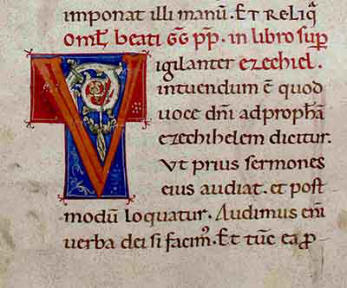 imponat illi manū. Et reliq̄
Om̄l beati GG pp. in libro sup
Vigilanter ezechiel.
intuendum ē quod
uoce dn̄i ad prophā
ezechihelem dicitur.
Vt prius sermones
eius audiat. et post
modū loquatur. Audimus eni
verba dei si facim᷒. Et tūc ea ꝓ